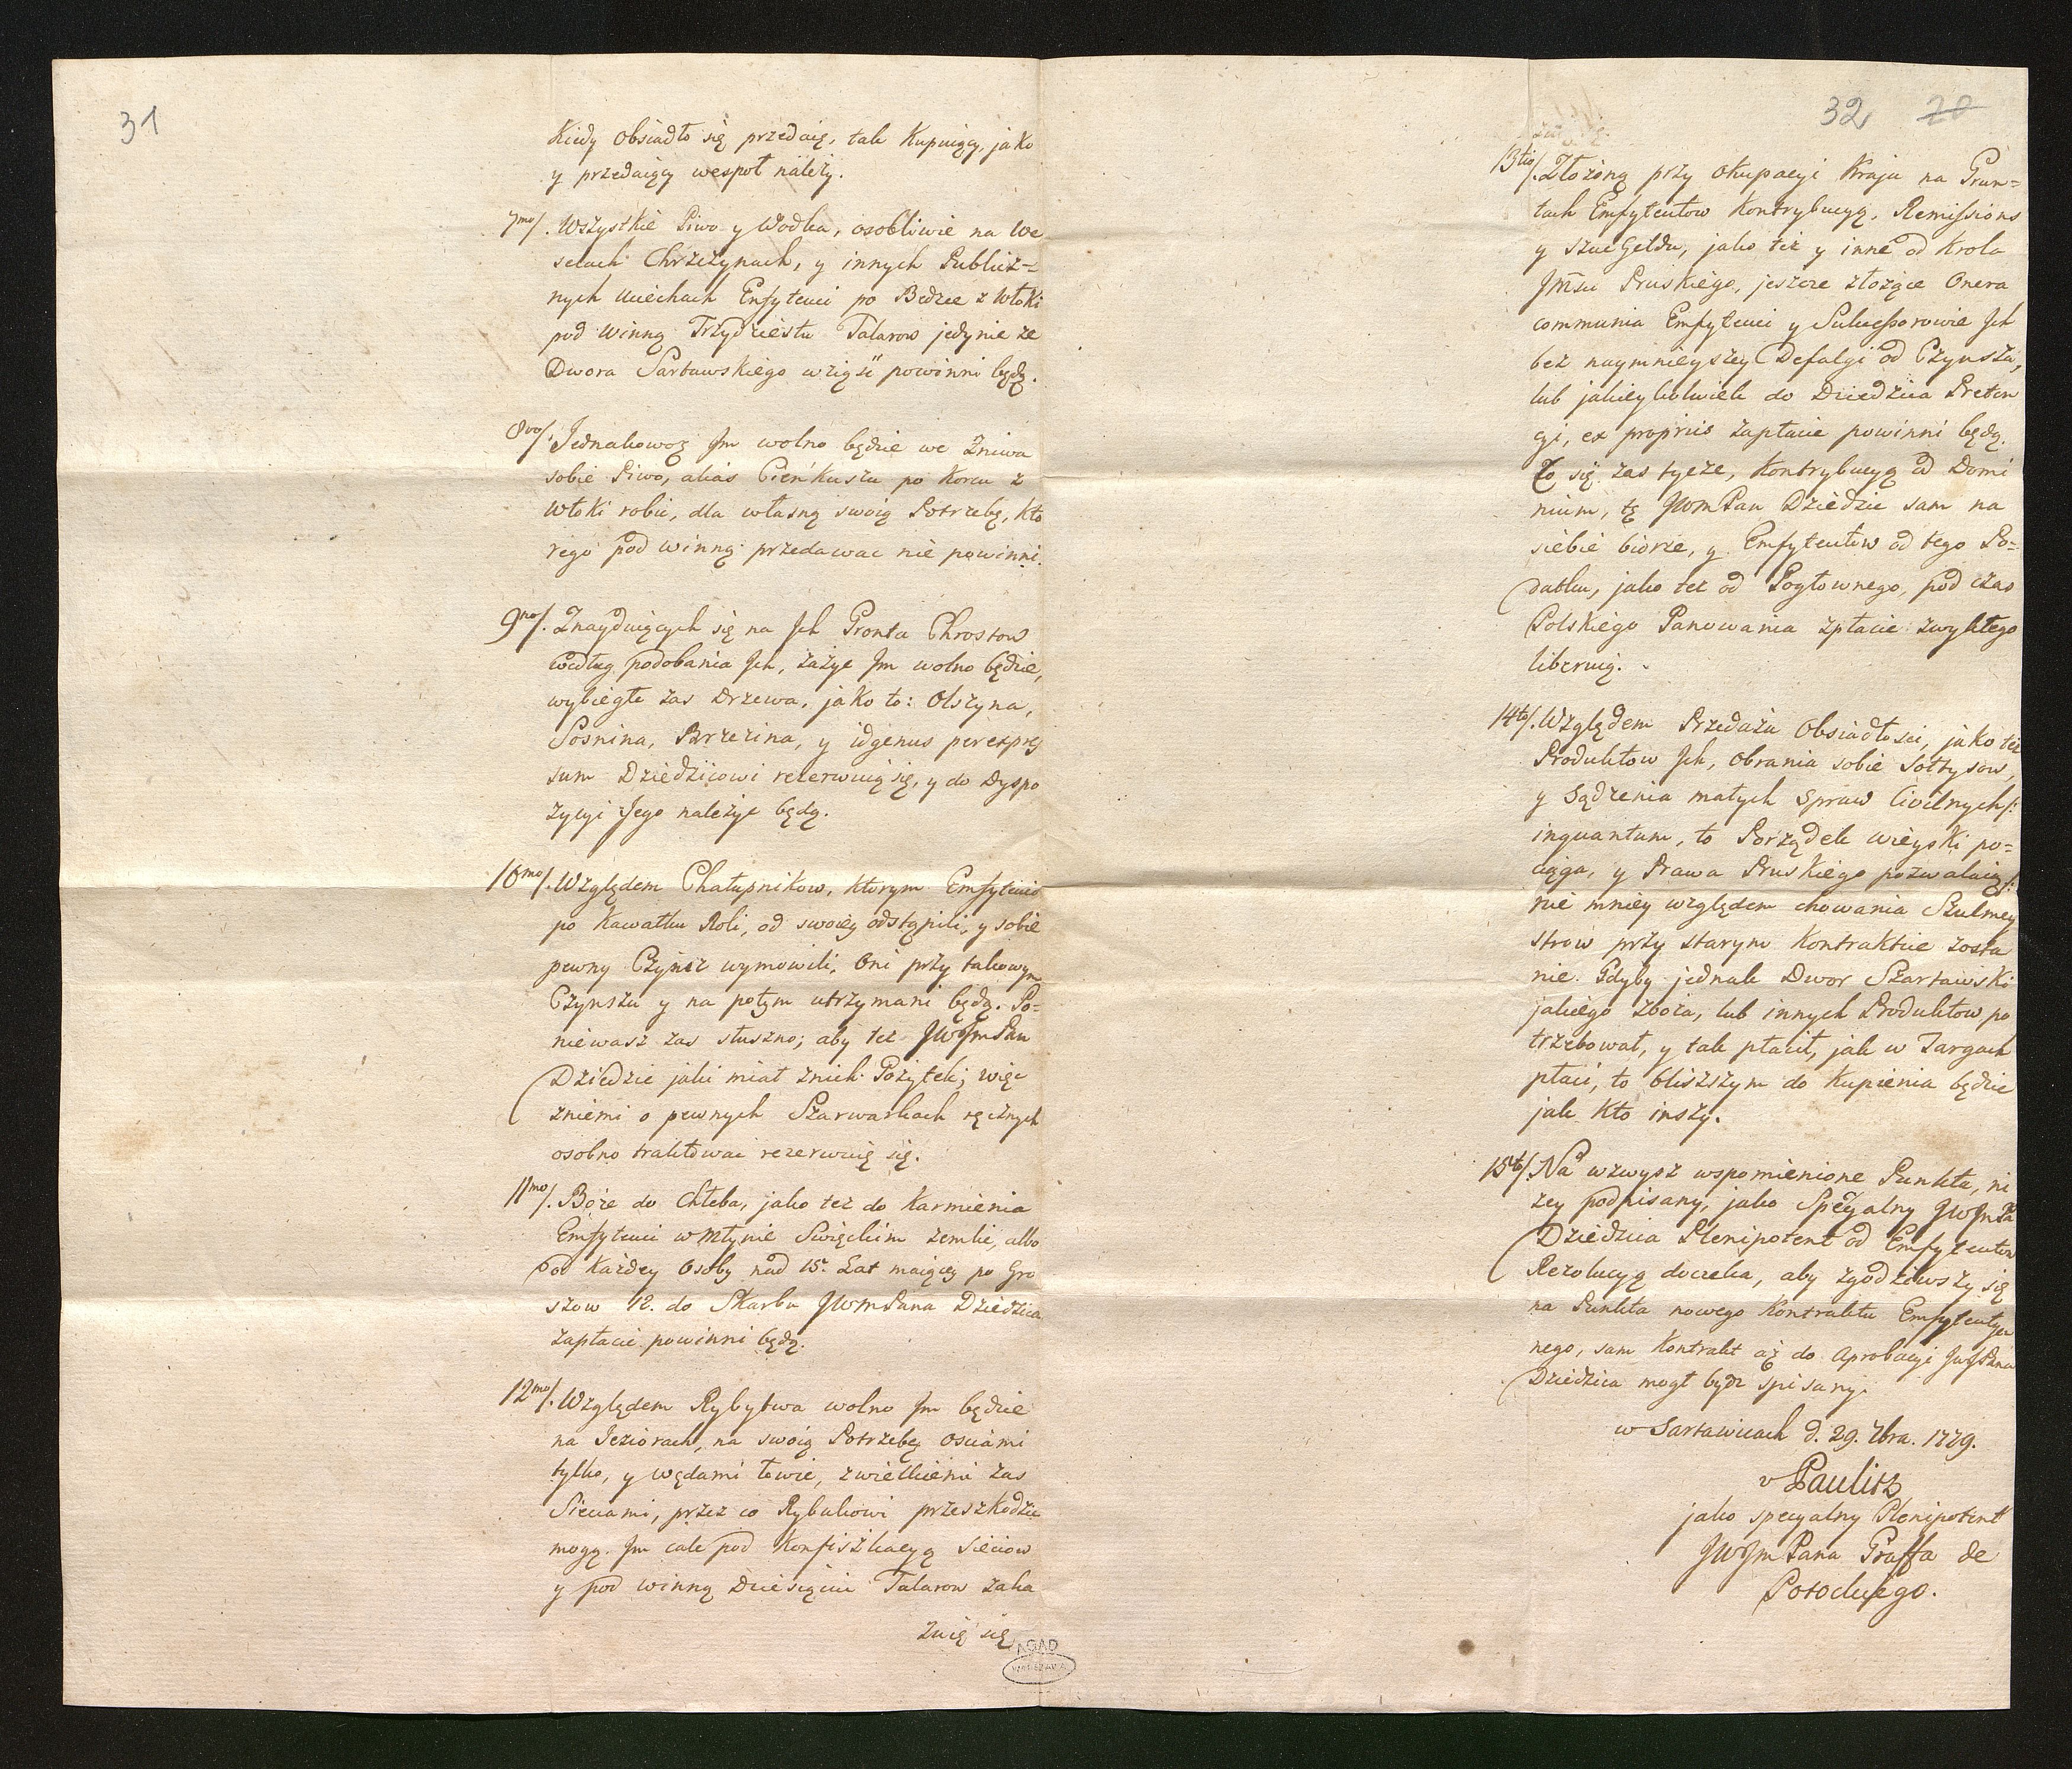 31
Kiedy obsiadło się przedaię, tak Kupuiący, jako
y przedaiący wespoł należy.
7mo/. Wszystkie Piwo y Wodka, osobliwie na We
selach Chrzczynach, y innych Publicz=
nych uciechach Enfyteuci po Beczce z Włoki
pod winną Trzydziestu Talarow jedynie ze
Dwora Sartawskiego wziąść powinni będą.
8vo/. Jednakowoz Jm wolno będzie we Zniwa
sobie Piwo, alias Cieńkuszu po Korcu z
Włoki robic, dla własną swoią Potrzebę, kto
rego pod winną przedawac nie powinni.
9no/. Znayduiących się na Jch Gronta Chrostow
według podobania Jch, zażyc Jm wolno będzie,
wybiegłe zas Drzewa, jako to: Olszyna,
Sosnina, Brzezina, y idgenus per expres
sum Dziedzicowi rezerwuią się, y do Dyspo
zycyi Jego należyc będą.
10mo/. Względem Chałupnikow, ktorym Emfyteuci
po Kawałku Roli, od swoiey odstąpili, y sobie
pewny Czynsz wymowili, Oni przy takowym
Czynszu y na potym utrzymani będą. Po=
niewasz zas słuszno; aby tez JWJmPan
Dziedzic jaki miał znich Pożytek; więc
zniemi o pewnych Szarwarkach ręcznych
osobno traktowac rezerwuię się.
11mo/. Boże do Chleba, jako tez do Karmienia
Emfyteuci w Młynie Swięckim zemlic, albo
od każdey Osoby nad 15. Lat maiącey po Gro
szow 12. do Skarbu JWmPana Dziedzica
zapłacic powinni będą.
12mo/. Względem Rybytwa wolno Jm będzie
na Jeziorach, na swoią Potrzebę osciami
tylko, y wędami łowic, zwielkiemi zas
Sieciami, przez co Rybakowi przeszkodzic
mogą. Jm cale pod Konfiszkacyą Sieciow
y pod winną Dziesięciu Talarow zaka
zuię się
AGAD
WARSZAWA
32 20
13tio/. Złożoną przy okupacyi Kraju na Grun=
tach Emfyteutow Kontrybucyą, Remissions
y szac Geldu, jako tez y inne od Krola
Jmsci Pruskiego, jeszcze złożące Onera
communia Emfyteuci y Sukcessorowie Jch
bez naymnieyszey Defalgi od Czynszu,
lub jakieykolwiek do Dziedzica Preten
cyi, ex propriis zapłacic powinni będą.
Co się zas tycze, Kontrybucyą od Domi
nium, tę JWmPan Dziedzic sam na
siebie bierze, y Emfyteutow od tego Po=
datku, jako tez od Pogłownego, pod czas
Polskiego Panowania zpłacic zwykłego
liberuię.
14to/. Względem Przedażu Obsiadłosci, jako tez
Produktow Jch, obrania sobie sołtysow,
y sądzenia małych spraw Civilnych/:
inquantum, to Porządek wieyski po=
ciąga, y Prawa Pruskiego pozwalaią:/
nie mniey względem chowania Szulmey
strow przy starym Kontrakcie zosta
nie. Gdyby jednak Dwor Szartawski
jakiego zboża, lub innych Produktow po
trzebował, y tak płacił, jak w Targach
płaci, to bliższym do Kupienia będzie
jak kto inszy.
15to/. Na wzwysz wspomienione Punkta, ni
zey podpisany, jako Specyalny JWJmPa
Dziedzica Plenipotent od Emfyteutow
Rezolucyą doczeka, aby zgodziwszy się
na Punkta nowego Kontraktu Emfyteutycz
nego, sam Kontrakt aż do Aprobacyi JWJPana
Dziedzica mogł bydz spisany.
w Sartawicach d. 29. 7bra. 1779.
v Paulitz
jako specyalny Plenipotent
JWJmPana Graffa de
Potockiego.